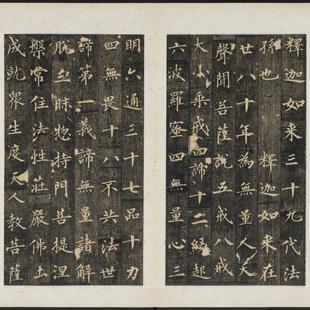 釋迦如来三十九代法
孫也　釋迦如来在
世八十年為無量人天
聲聞菩薩說五戒八戒
大小乗戒四諦十二緣起
六波羅蜜四無量心三
明六通三十七品十力
四無畏十八不共法世
諦第一義諦無量諸解
脱三昧惣持門菩提涅
槃常住法性莊嚴佛土
成就眾生度天人教菩薩